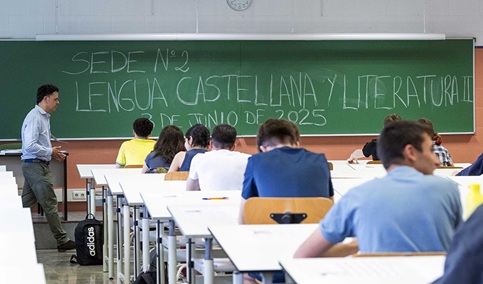 SEDE Nº2
LENGUA CASTELLANA Y LITERATURA II
3 DE JUNIO DE 2025
adidas